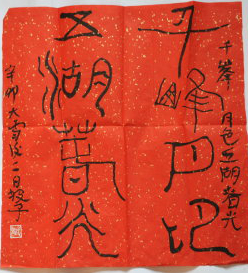 千峰月色
五湖春光
千峯月色五湖春光
辛卯大雪后一日